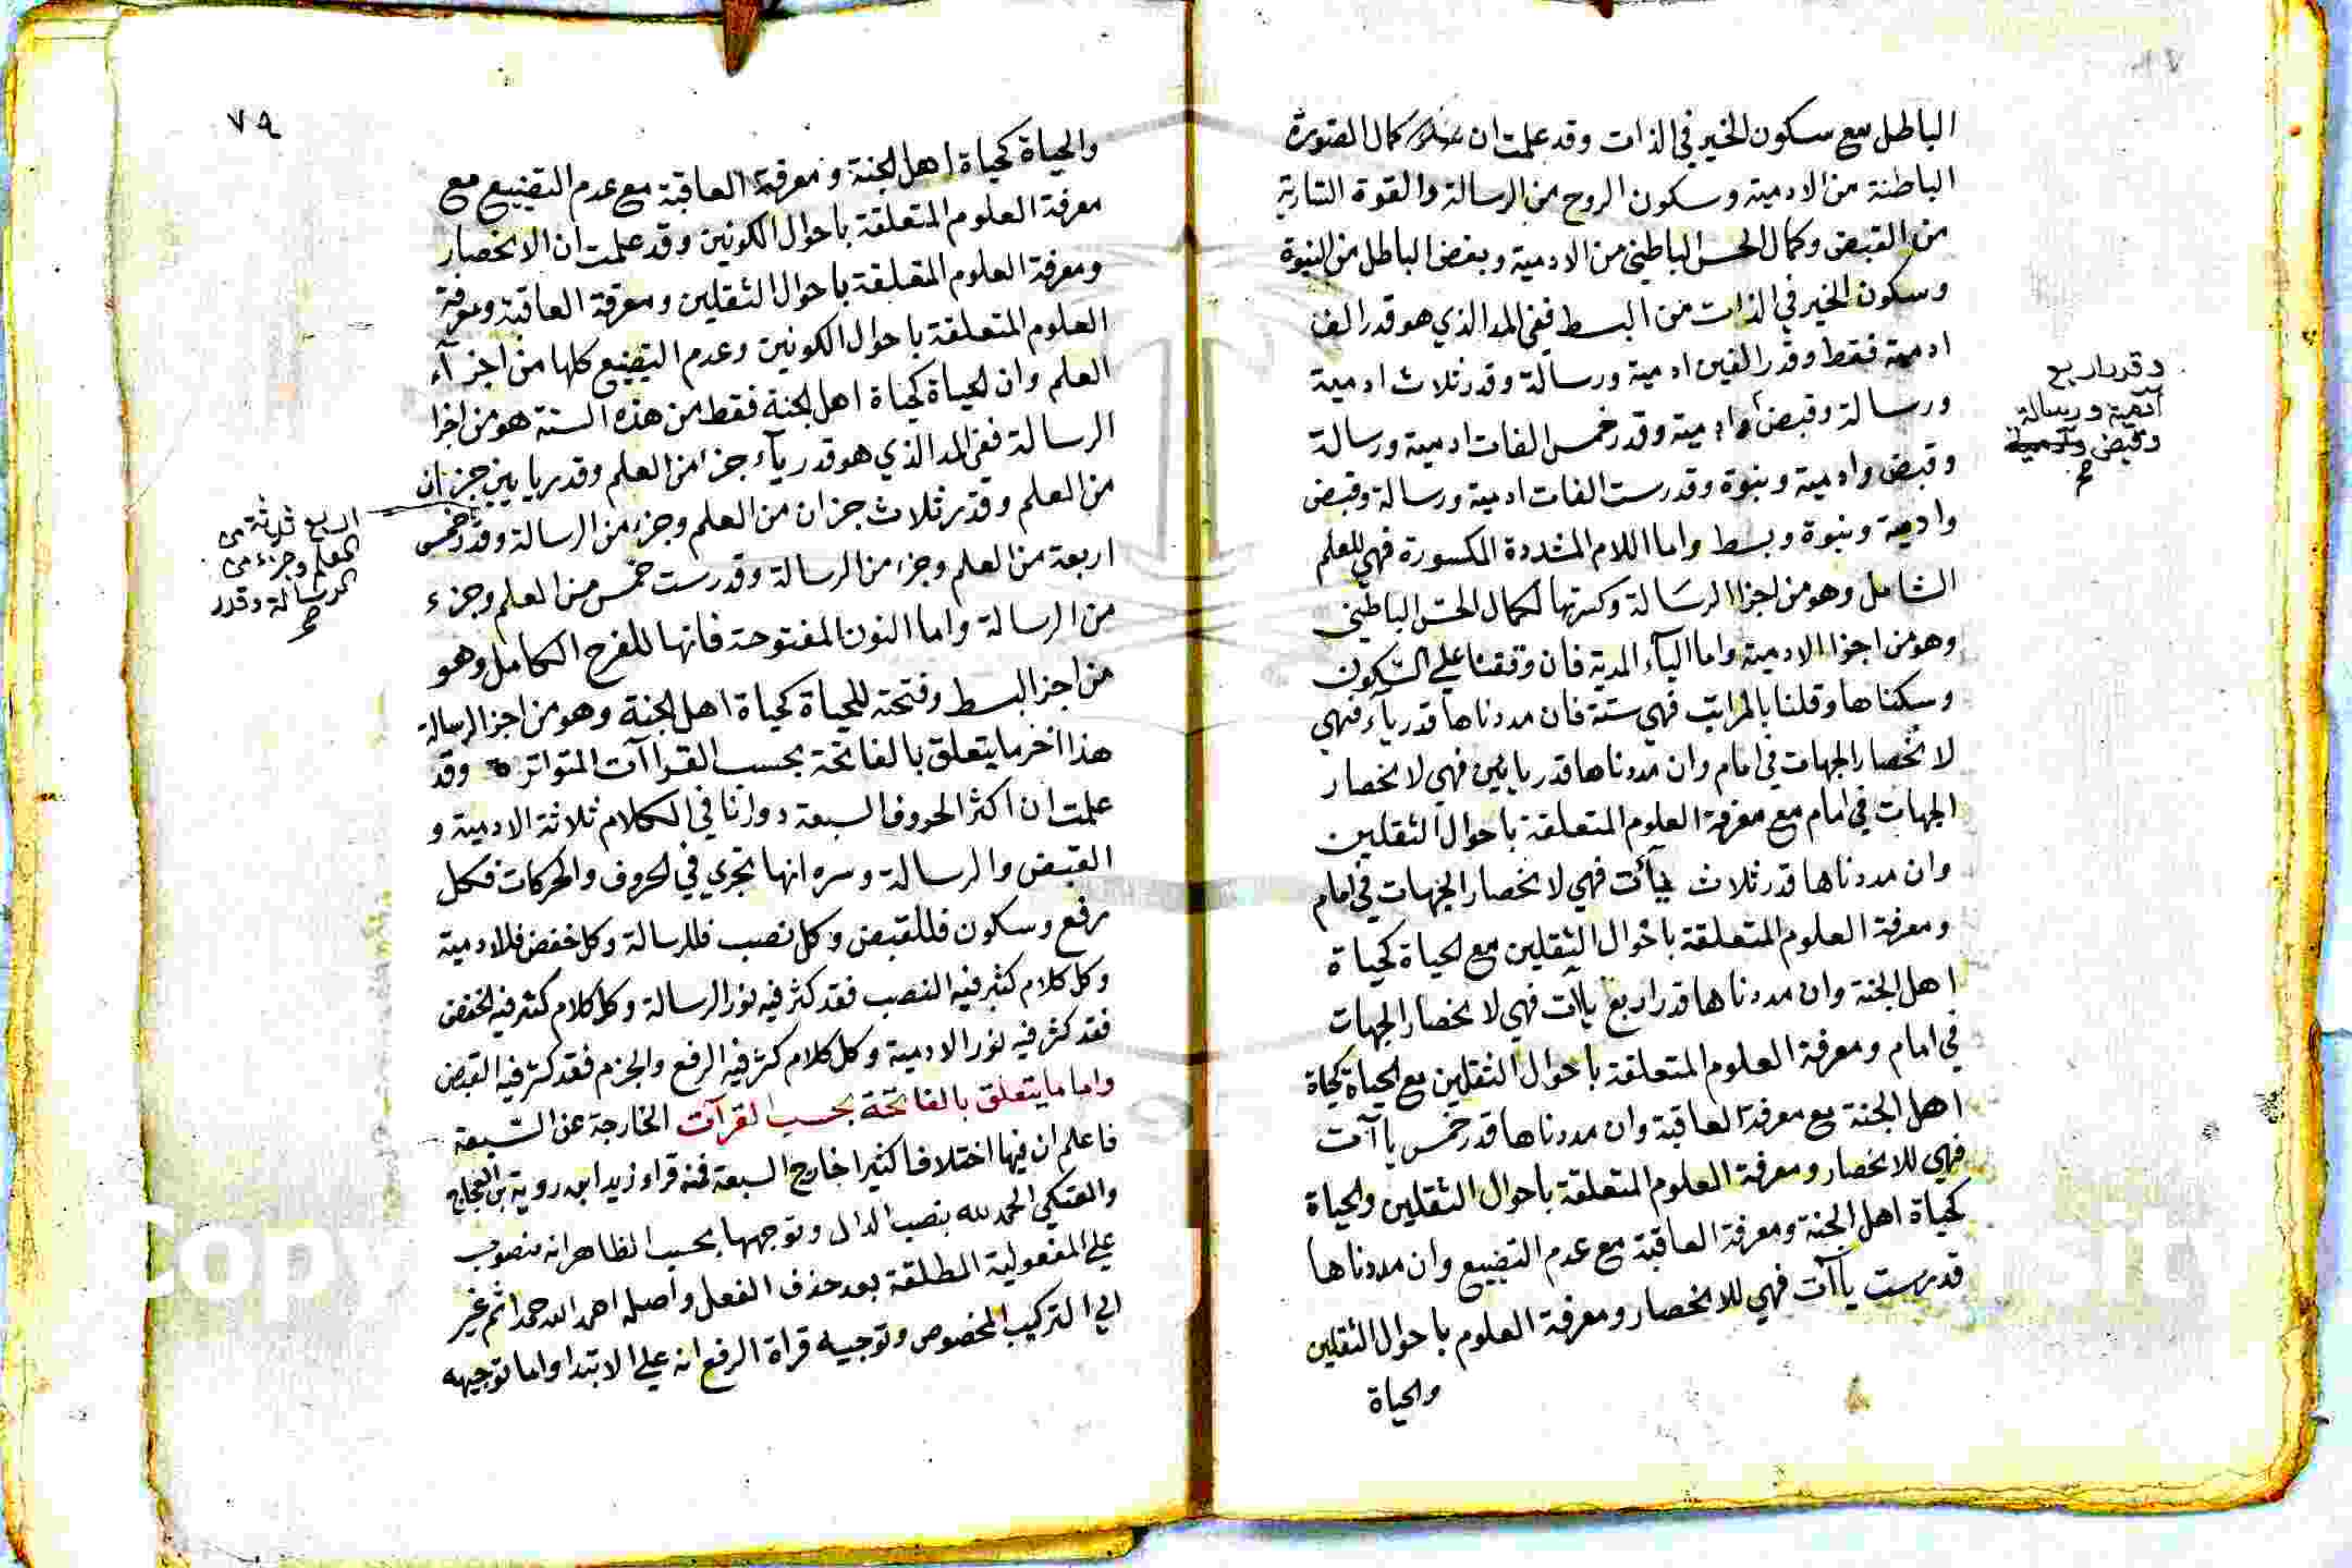 الباطل مع سكون الخير في الذات وقد علمت ان كمال الصورة
الباطنة من الادمية وسكون الروح من الرسالة والقوة السارية
من القبض وكمال الحس الباطني من الادمية وبغض الباطل من النبوة
وسكون الخير في الذات من البسط ففي المد الذي هو قدر الف
ادمية فقط وقدر الفين ادمية ورسالة وقدر ثلاث ادمية
ورسالة وقبض وادمية وقدر خمس الفات ادمية ورسالة
وقبض وادمية ونبوة وقدر ست الفات ادمية ورسالة وقبض
وادمية ونبوة وبسط واما اللام المشددة المكسورة فهي للعلم
الشامل وهو من اجزا الرسالة وكسرتها لكمال الحس الباطني
وهو من اجزا الادمية واما الياء المدية فان وقفنا علي السكون
وسكناها وقلنا بالمراتب فهي ستة فان مددناها قدر ياء فهي
لانحصار الجهات في امام وان مددناها قدر يايين فهي لانحصار
الجهات في امام مع معرفة العلوم المتعلقة باحوال الثقلين
وان مددناها قدر ثلاث ياآت فهي لانحصار الجهات في امام
ومعرفة العلوم المتعلقة باحوال الثقلين مع الحياة كحياة
اهل الجنة وان مددناها قدر اربع ياآت فهي لانحصار الجهات
في امام ومعرفة العلوم المتعلقة باحوال الثقلين مع الحياة كحياة
اهل الجنة مع معرفة العاقبة وان مددناها قدر خمس ياآت
فهي للانحصار ومعرفة العلوم المتعلقة باحوال الثقلين والحياة
كحياة اهل الجنة ومعرفة العاقبة مع عدم التضييع وان مددناها
قدر ست ياآت فهي للانحصار ومعرفة العلوم باحوال الثقلين
والحياة
وقدر اربع
آدمية ورسالة
وقبض وآدمية
صح
٧٩
والحياة كحياة اهل الجنة ومعرفة العاقبة مع عدم التضييع مع
معرفة العلوم المتعلقة باحوال الكونين وقد علمت ان الانحصار
ومعرفة العلوم المتعلقة باحوال الثقلين ومعرفة العاقبة ومعرفة
العلوم المتعلقة باحوال الكونين وعدم التضييع كلها من اجزآء
العلم وان الحياة كحياة اهل الجنة فقط من هذه الستة هو من اجزا
الرسالة ففي المد الذي هو قدر ياء جزء من العلم وقدر يايين جزان
من العلم وقدر ثلاث جزان من العلم وجزء من الرسالة وقدر خمس
اربعة من العلم وجزء من الرسالة وقدر ست خمس من العلم وجزء
من الرسالة واما النون المفتوحة فانها للفرح الكامل وهو
من اجزا البسط وفتحته للحياة كحياة اهل الجنة وهو من اجزا الرسالة
هذا اخر ما يتعلق بالفاتحة بحسب القراآت المتواترة وقد
علمت ان اكثر الحروف السبعة دورانا في الكلام ثلاثة الادمية و
القبض والرسالة وسره انها تجري في الحروف والحركات فكل
رفع وسكون فللقبض وكل نصب فللرسالة وكل خفض فللادمية
وكل كلام كثر فيه النصب فقد كثر فيه نور الرسالة وكل كلام كثر فيه الخفض
فقد كثر فيه نور الادمية وكل كلام كثر فيه الرفع والجزم فقد كثر فيه القبض
واما ما يتعلق بالفاتحة بحسب القرآت الخارجة عن السبعة
فاعلم ان فيها اختلافا كثيرا خارج السبعة فمنه قراة زيد ابن روبة بن العجاج
والعتكي الحمد لله بنصب الدال وتوجيهها بحسب الظاهر انه منصوب
علي المفعولية المطلقة بعد حذف الفعل واصله احمد الله حمدا ثم غير
الي التركيب المخصوص وتوجيه قراة الرفع انه علي الابتدا واما توجيهه
اربع ثلاثة من
العلم وجزء من
الرسالة وقدر
صح